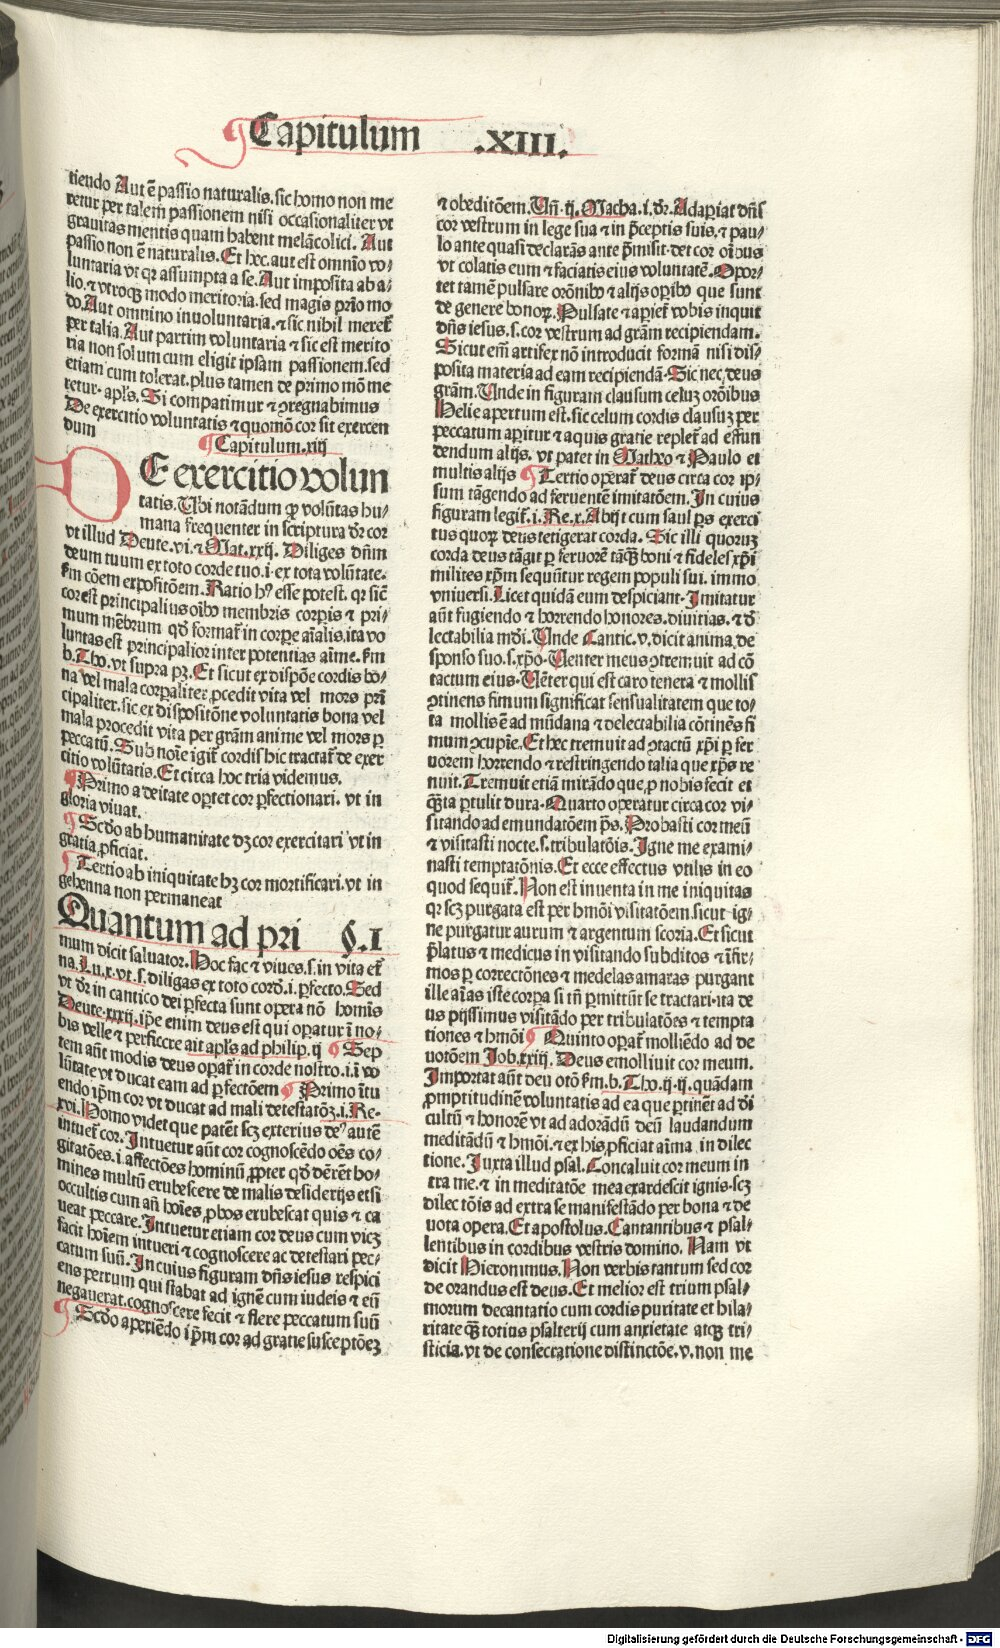 Capitulum .XIII.
tiendo Aut ē passio naturalis. sic homo non me
retur per talem passionem nisi occasionaliter vt
grauitas mentis quam habent melācolici. Aut
passio non ē naturalis. Et hec. aut est omnīo vo⸗
luntaria vt qr assumpta a se. Aut imposita ab a⸗
lio. ⁊ vtroqꝫ modo meritoria. sed magis prīo mo
do. Aut omnino inuoluntaria. ⁊ sic nihil meret̄
per talia. Aut partim voluntaria ⁊ sic est merito
ria non solum cum eligit ipsam passionem. sed
etiam cum tolerat. plus tamen de primo mō me
retur. apl̄s. Si compatimur ⁊ ꝯregnabimus
De exercitio voluntatis ⁊ quomō cor sit exercen
dum
Capitulum. xiij
DE exercitio volun
tatis. Ubi notādum ꝙ volūtas hu⸗
mana frequenter in scriptura dr̄ cor
vt illud Deute. vi. ⁊ Mat. xxij. Diliges dn̄m
deum tuum ex toto corde tuo. i. ex tota volūtate.
km̄ cōem expositōem. Ratio hꝰ esse potest. qr sic̄
cor est principalius oībꝰ membris corpis ⁊ pri⸗
mum mēbrum qd̄ format̄ in corpe aīalis. ita vo
luntas est principalior inter potentias aīme. km̄
b. Tho. vt supra pꝫ. Et sicut ex dispōe cordis bo⸗
na vel mala corꝑaliter ꝓcedit vita vel mors prī
cipaliter. sic ex dispositōne voluntatis bona vel
mala procedit vita per grām anime vel mors ꝑ
peccatū. Sub noīe igit̄ cordis hic tractat̄ de exer
citio volūtatis. Et circa hoc tria videmus.
Primo a deitate oꝑtet cor ꝑfectionari. vt in
gloria viuat.
Scd̄o ab humanitate dꝫ cor exercitari vt in
gratia ꝓficiat.
Tertio ab iniquitate hꝫ cor mortificari. vt in
gehenna non permaneat
Quantum ad pri §. I
mum dicit saluator. Hoc fac ⁊ viues. s. in vita et̄
na. Lu. x. vt. s. diligas ex toto cord̄. i. ꝑfecto. Sed
vt dr̄ in cantico dei ꝑfecta sunt opera nō homīs
Deute. xxxij. ip̄e enim deus est qui opatur ī no⸗
bis velle ⁊ perficere ait apl̄s ad philip. ij Sep
tem aūt modis deus opat̄ in corde nostro. i. ī vo
lūtate vt ducat eam ad ꝑfectōem Primo ītu
endo ip̄m cor vt ducat ad mali detestatōꝫ. i. Re⸗
xvi. Homo videt que patēt scꝫ exterius deꝰ autē
intuet̄ cor. Intuetur aūt cor cognoscēdo oēs co⸗
gitatōes. i. affectōes hominū ꝓpter qd̄ dēret̄ ho⸗
mines multū erubescere de malis desiderijs etsi
occultis cum añ hoīes ꝓbos erubescat quis ⁊ ca
ueat peccare. Intuetur etiam cor deus cum vicꝫ
facit hoīem intueri ⁊ cognoscere ac detestari pec⸗
catum suū. In cuius figuram dn̄s iesus respici
ens petrum qui stabat ad ignē cum iudeis ⁊ eū
negauerat. cognoscere fecit ⁊ flere peccatum suū
Scd̄o aperiēdo ip̄m cor ad gratie susceptōeꝫ
⁊ obeditōem. Uñ. ij. Macha. i. dr̄. Adapiat dn̄s
cor vestrum in lege sua ⁊ in p̄ceptis suis. ⁊ pau⸗
lo ante quasi declarās ante p̄misit. det cor oībus
vt colatis eum ⁊ faciatis eius voluntatē. Opor⸗
tet tamē pulsare orōnibꝰ ⁊ alijs opibꝰ que sunt
de genere bonoꝝ. Pulsate ⁊ apiet̄ vobis inquit
dn̄s iesus. s. cor vestrum ad grām recipiendam.
Sicut em̄ artifex nō introducit formā nisi dis⸗
posita materia ad eam recipiendā. Sic nec deus
grām. Unde in figuram clausum celuꝫ orōibus
Helie apertum est. sic celum cordis clausuꝫ per
peccatum apitur ⁊ aquis gratie replet̄ ad effun
dendum alijs. vt patet in Matheo ⁊ Paulo et
multis alijs Tertio operat̄ deus circa cor ip⸗
sum tāgendo ad feruentē imitatōem. In cuius
figuram legit̄. i. Re. x. Abijt cum saul ꝑs exerci
tus quoꝝ deus tetigerat corda. Sic illi quoruꝫ
corda deus tāgit ꝑ feruorē tāqꝫ boni ⁊ fideles xp̄i
milites xp̄m sequūtur regem populi sui. immo
vniuersi. Licet quidā eum despiciant. Imitatur
aūt fugiendo ⁊ horrendo honores. diuitias. ⁊ d̄
lectabilia mūdi. Unde Cantic. v. dicit anima de
sponso suo. s. xp̄o. Uenter meus ꝯtremuit ad cō
tactum eius. Uēter qui est caro tenera ⁊ mollis
ꝯtinens fimum significat sensualitatem que to⸗
ta mollis ē ad mūdana ⁊ delectabilia cōtinēs fi
mum ꝯcupīe. Et hec tremuit ad ꝯtactū xp̄i ꝑ fer
uorem horrendo ⁊ restringendo talia que xp̄s re
nuit. Tremuit etiā mirādo que ꝓ nobis fecit et
qꝫta ꝑtulit dura. Quarto operatur circa cor vi⸗
sitando ad emundatōem p̄s. Probasti cor meū
⁊ visitasti nocte. s. tribulatōis. Igne me exami⸗
nasti temptatōnis. Et ecce effectus vtilis in eo
quod sequit̄. Non est inuenta in me iniquitas
qr scꝫ purgata est per hmōi visitatōem. sicut ig⸗
ne purgatur aurum ⁊ argentum scoria. Et sicut
p̄latus ⁊ medicus in visitando subditos ⁊ īfir⸗
mos ꝑ correctōnes ⁊ medelas amaras purgant
ille aīas iste corpa si tn̄ ꝑmittūt se tractari. ita de
us pijssimus visitādo per tribulatōes ⁊ tempta
tiones ⁊ hmōi Quinto opat̄ molliēdo ad de
uotōem Job. xxiij. Deus emolliuit cor meum.
Importat aūt deuotōō km̄. b. Tho. ij. ij. quādam
ꝓmptitudinē voluntatis ad ea que ꝑtinēt ad di
cultū ⁊ honorē vt ad adorādū deū laudandum
meditādū ⁊ hmōi. ⁊ ex his ꝓficiat aīma in dilec
tione. Juxta illud psal. Concaluit cor meum in
tra me. ⁊ in meditatōe mea exardescit ignis. scꝫ
dilectōis ad extra se manifestādo per bona ⁊ de
uota opera. Et apostolus. Cantantibus ⁊ psal⸗
lentibus in cordibus vestris domino. Nam vt
dicit Hieronimus. Non verbis tantum sed cor
de orandus est deus. Et melior est trium psal⸗
morum decantatio cum cordis puritate et hila⸗
ritate qꝫ totius psalterij cum anxietate atqꝫ tri⸗
sticia. vt de consecratione distinctōe. v. non me
Digitalisierung gefördert durch die Deutsche Forschungsgemeinschaft - DFG